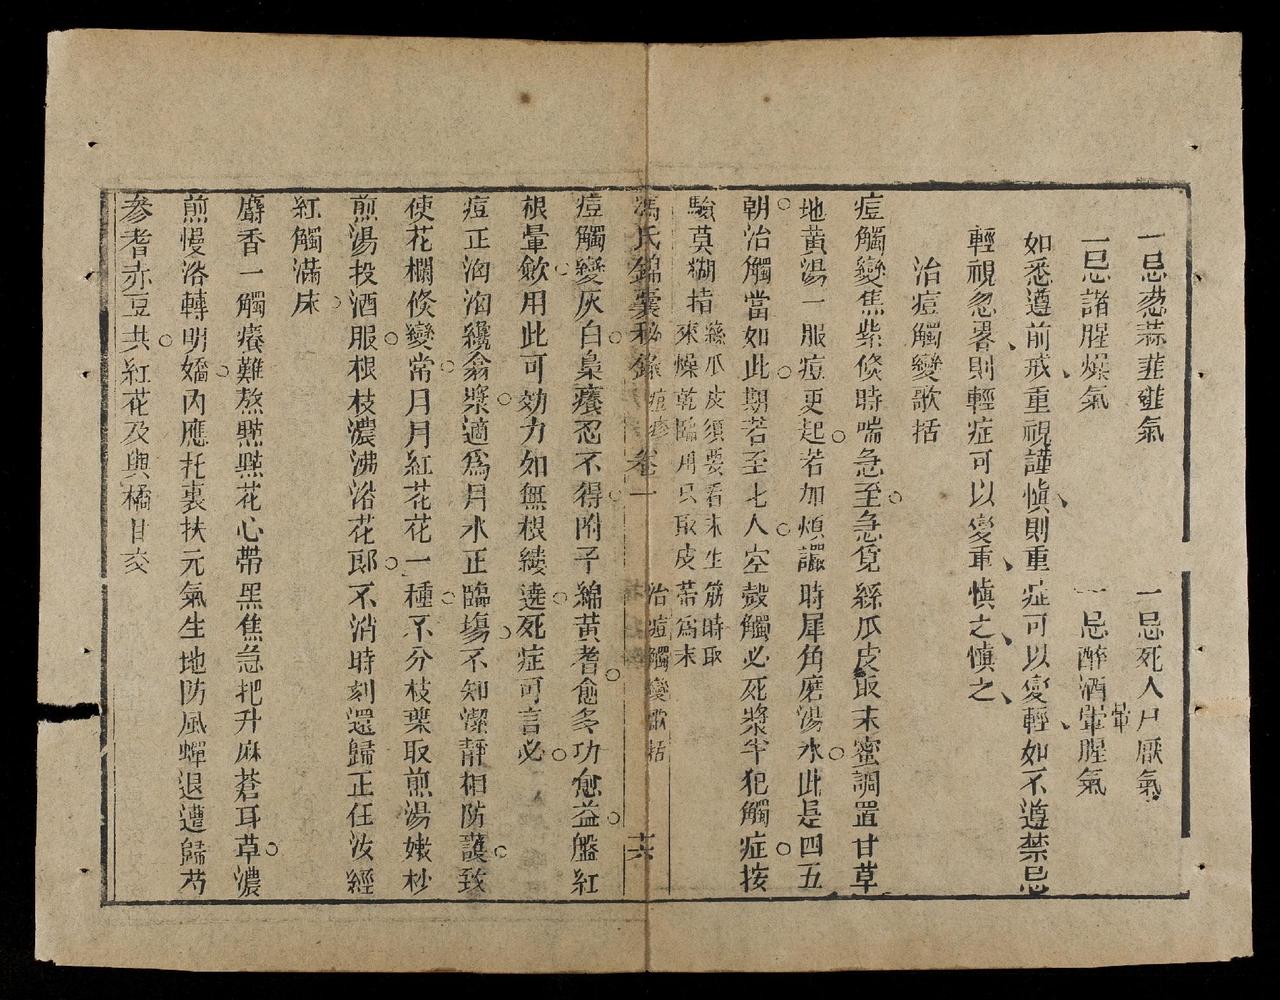 一忌葱蒜韭薤氣　一忌死人尸厭氣
一忌諸腥燥氣　一忌醉酒葷腥氣
葷
如悉遵前戒重視謹慎則重症可以變輕如不遵禁忌
輕視忽畧則輕症可以變重慎之慎之
治痘觸變歌括
痘觸變焦紫倏時喘急至急覓絲瓜皮取末蜜調置甘草
地黃湯一服痘更起若加煩讝時犀角磨湯水此是四五
朝治觸當如此期若至七人空殼觸必死漿半犯觸症按
駿莫糊揞
絲瓜皮須要看未生筋時取
來燥乾臨用只取皮蒂爲末
馮氏錦囊秘錄
痘疹
卷一
治痘觸變歌括
十六
痘觸變灰白梟癢忍不得附子綿黃耆愈多功愈益盤紅
根暈歛用此可効力如無根縷遶死症可言必
痘正洶洶纔翕漿適爲月水正臨塲不知潔靜相防護致
使花欄倏變常月月紅花花一種不分枝葉取煎湯嫩杪
煎湯投酒服根枝濃沸浴花郎不消時刻還歸正任汝經
紅觸滿床
麝香一觸癢難熬㷊㷊花心帶黑焦急把升麻蒼耳草濃
煎慢浴轉明嬌內應托裏扶元氣生地防風蟬退遭歸芍
參耆赤豆共紅花及與橘甘交